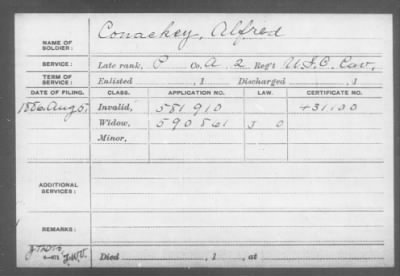 NAME OF SOLDIER: Conackey, Alfred
SERVICE: Late rank, P Co. A, 2 Reg't U.S.C. Cav.
TERM OF SERVICE: Enlisted , 1 Discharged , 1
DATE OF FILING. CLASS. APPLICATION NO. LAW. CERTIFICATE NO.
1886 Aug 5, Invalid, 581 910 431100
Widow, 590 861 J O
Minor,
ADDITIONAL SERVICES:
REMARKS:
Died , 1 , at